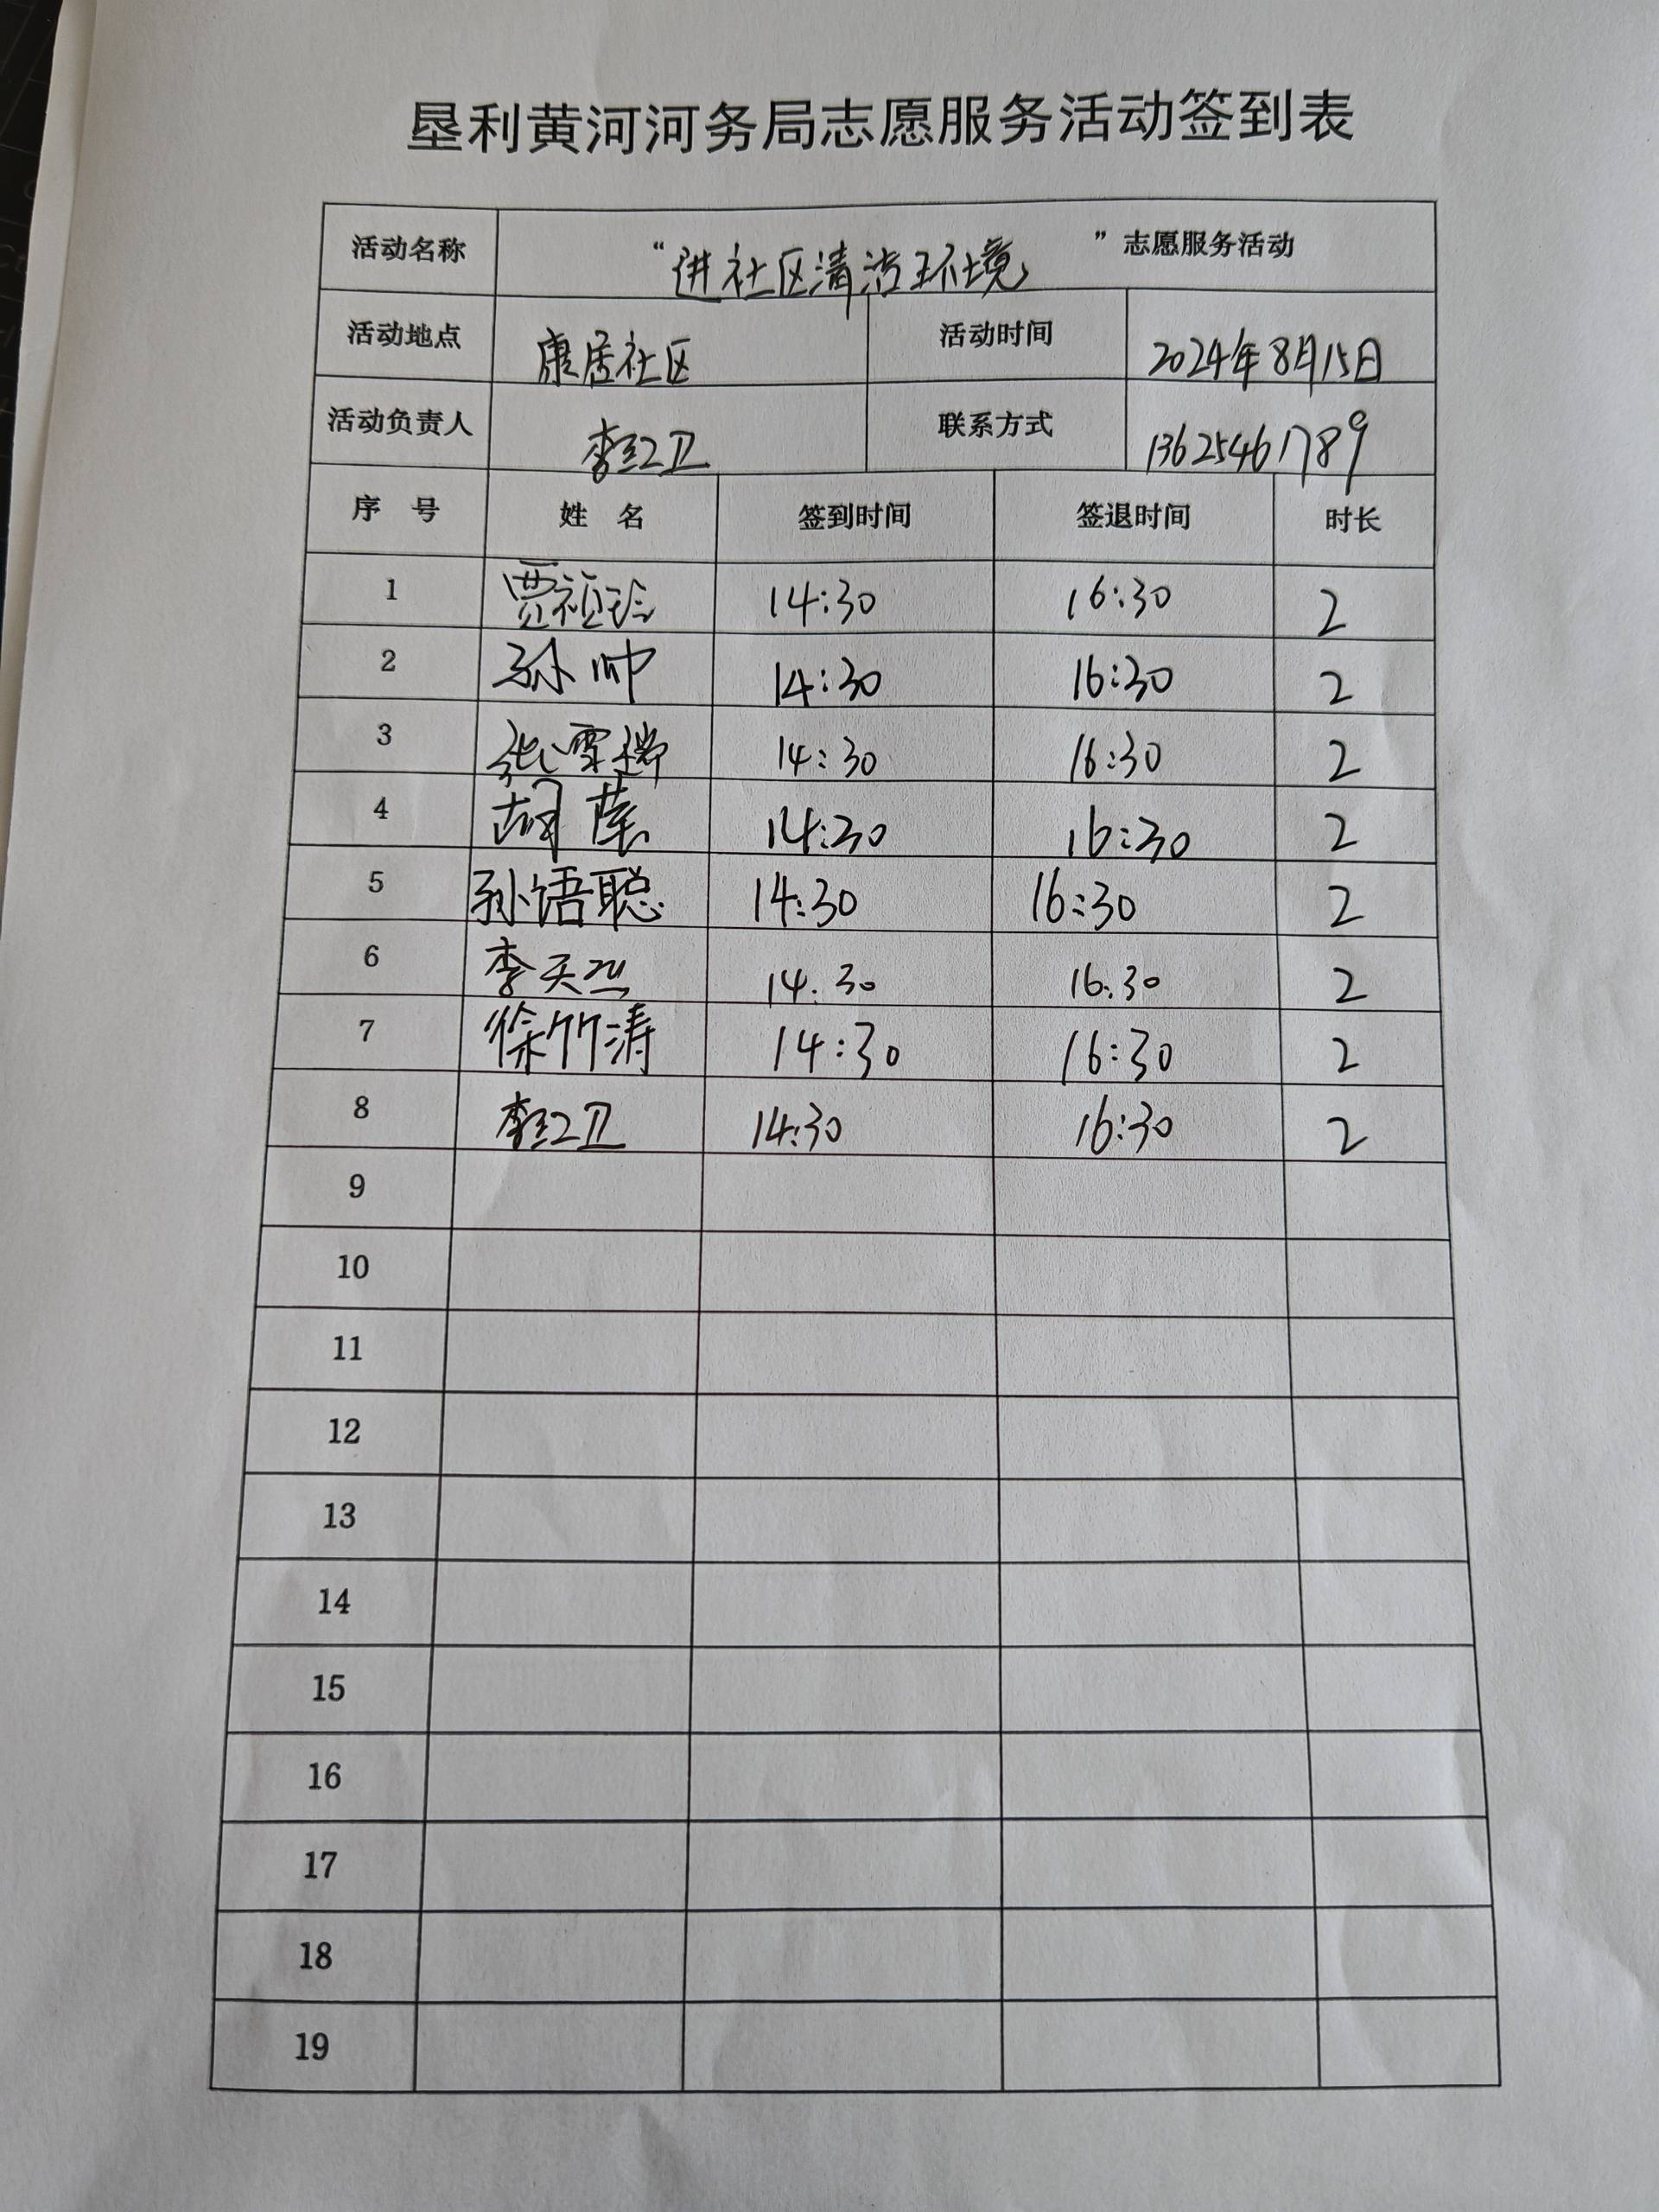 垦利黄河河务局志愿服务活动签到表
活动名称 “进社区清洁环境 ”志愿服务活动
活动地点 康居社区 活动时间 2024年8月15日
活动负责人 李红卫 联系方式 13625461789
序 号 姓 名 签到时间 签退时间 时长
1 贾祯 14:30 16:30 2
2 孙帅 14:30 16:30 2
3 张雪瑞 14:30 16:30 2
4 胡 14:30 16:30 2
5 孙语聪 14:30 16:30 2
6 李天 14:30 16:30 2
7 徐竹涛 14:30 16:30 2
8 李红卫 14:30 16:30 2
9
10
11
12
13
14
15
16
17
18
19